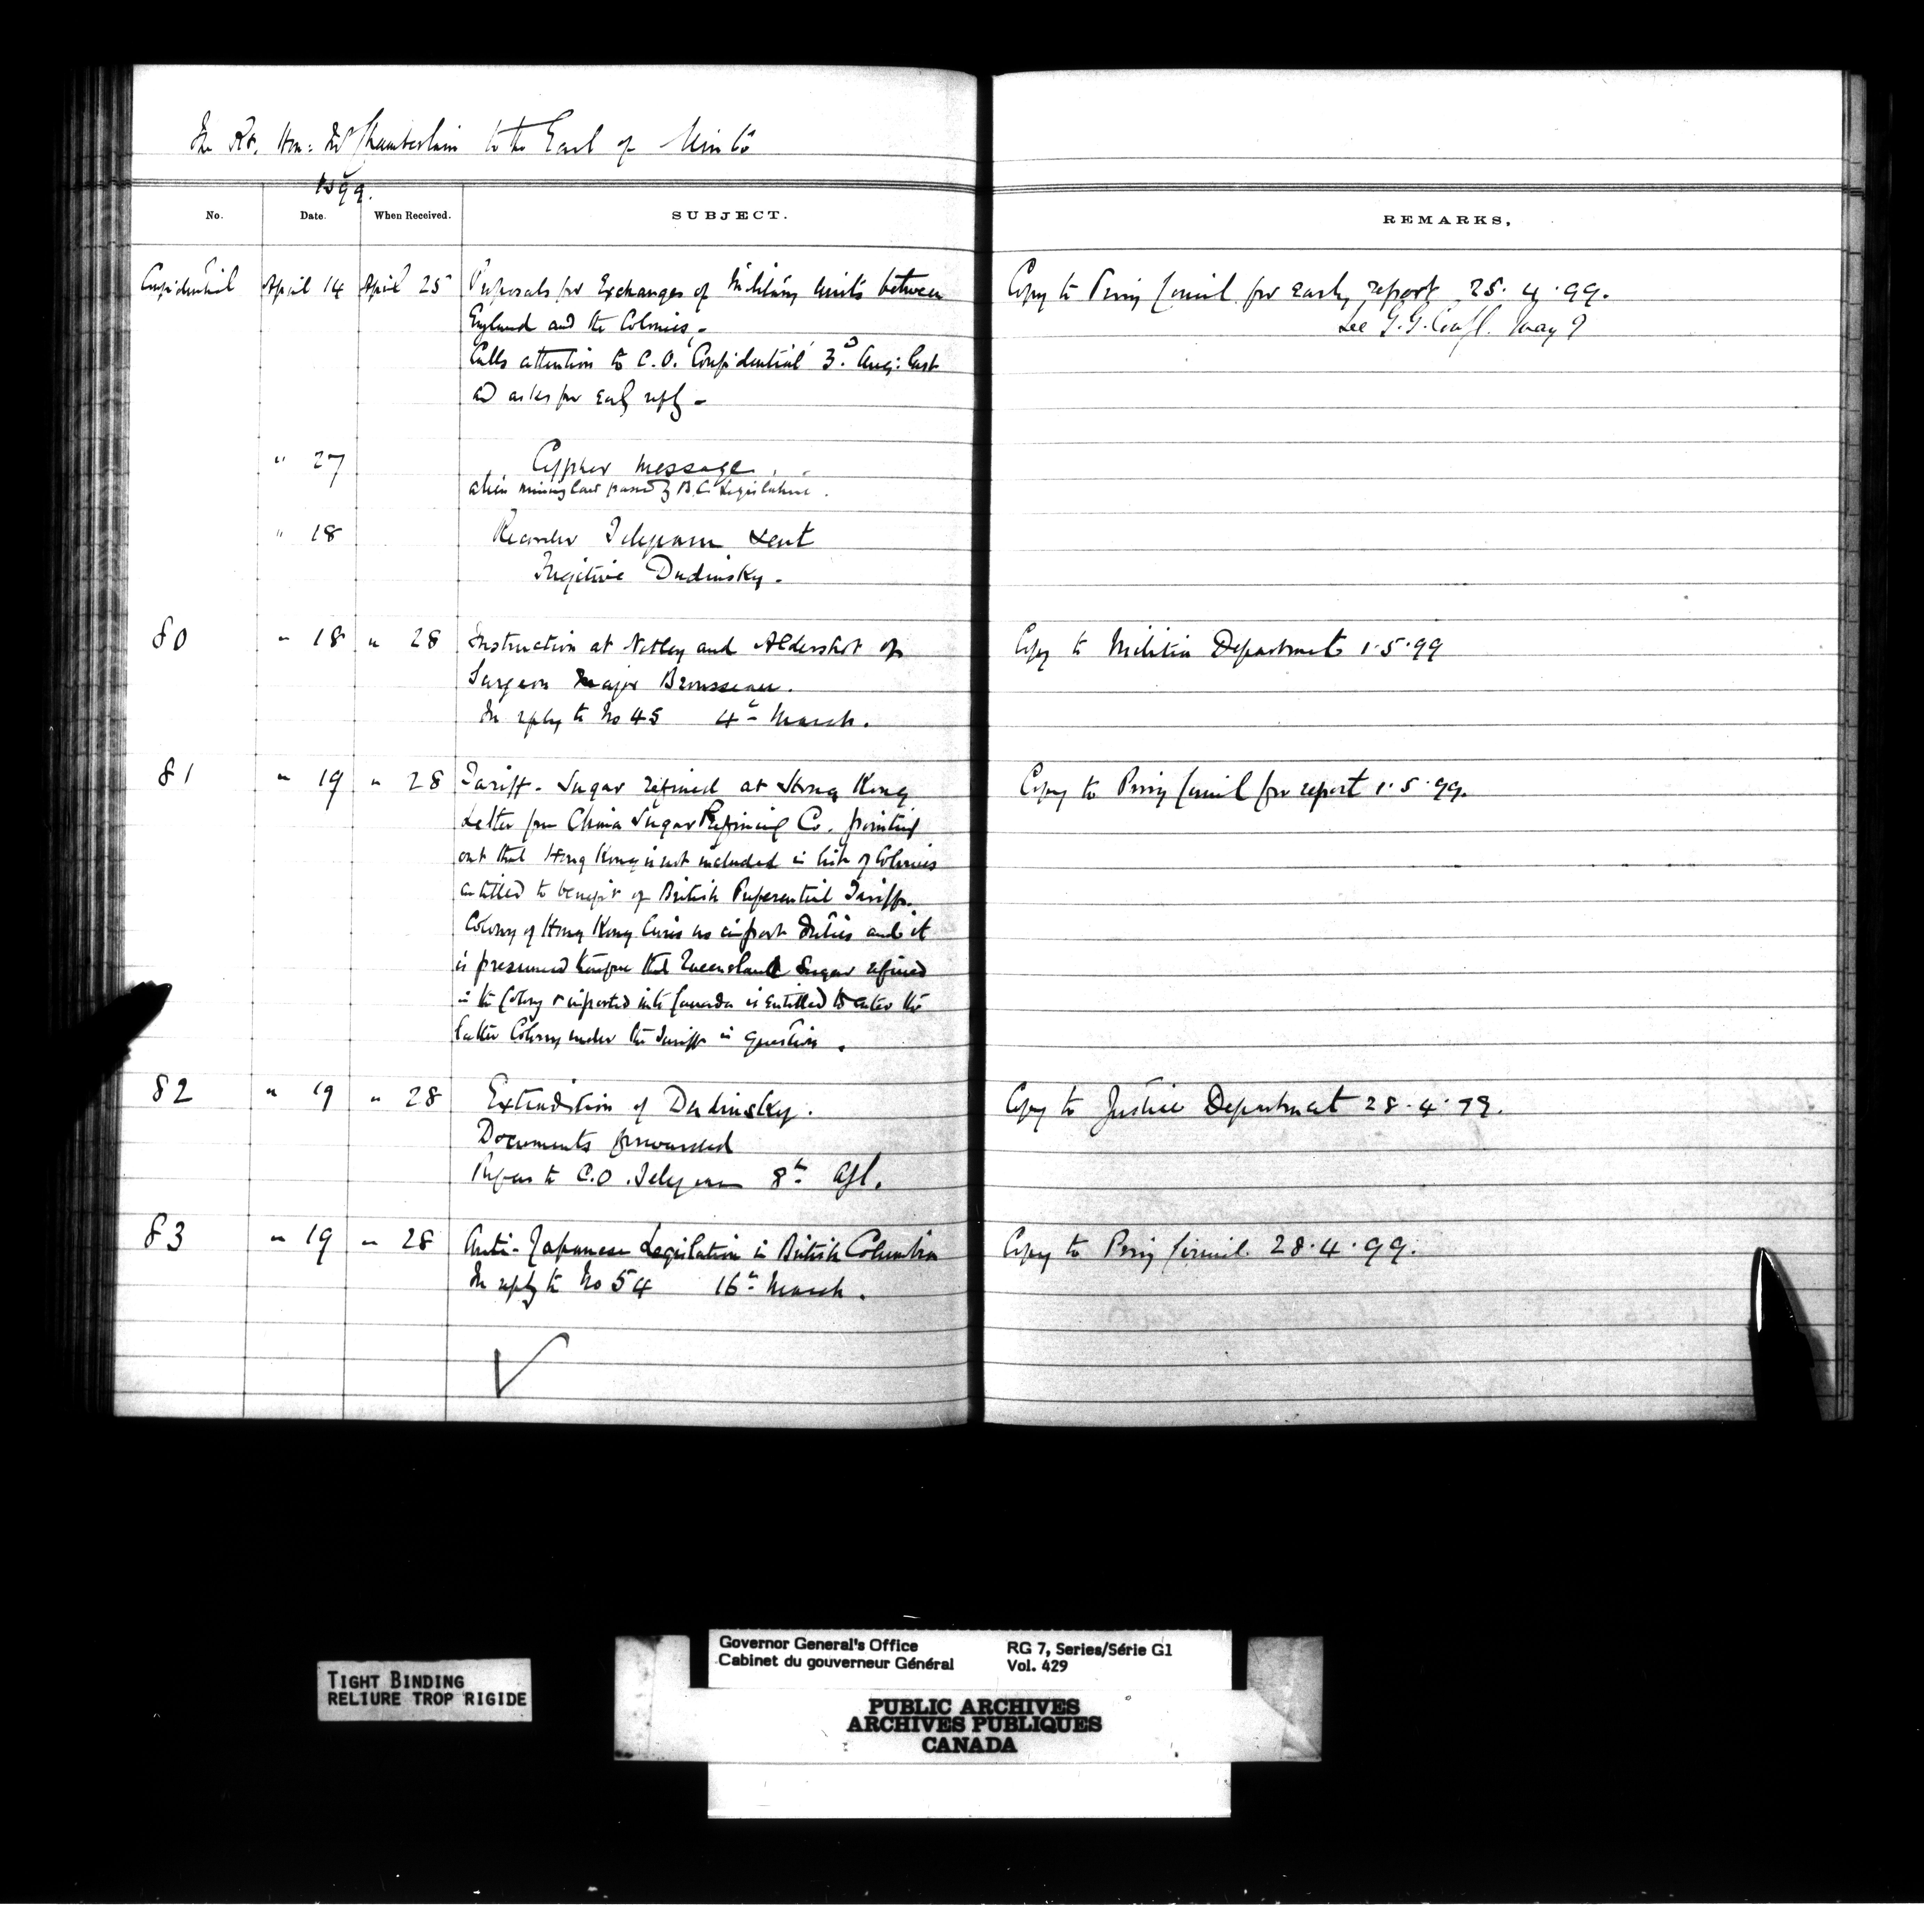 The Rt. Hon: Mr Chamberlain to the Earl of Minto
1899.
No. Date. When Received. SUBJECT. REMARKS,
Confidential April 14 April 25 Proposals for Exchanges of Military Units between Copy to Privy Council for early report 25.4.99.
England and the Colonies. See G.G. Confl. May 9
Calls attention to C.O. Confidential 3d Aug: last
and asks for early reply -
" 27 Cypher message.
Alien mining law passed by B.C. Legislature.
" 18 Telegram sent
Fugitive Dudinsky.
80 " 18 " 28 Instruction at Netley and Aldershot of Copy to Militia Department 1.5.99
Surgeon Major Brousseau.
In reply to No 45 4th March.
81 " 19 " 28 Tariff. Sugar refined at Hong Kong Copy to Privy Council for report 1.5.99.
Letter from China Sugar Refining Co. pointing
out that Hong Kong is not included in list of Colonies
entitled to benefit of British Preferential Tariff.
Colony of Hong Kong levies no import duties and it
is presumed therefore that Queensland Sugar refined
in the Colony & imported into Canada is entitled to enter the
latter Colony under the Tariff in question.
82 " 19 " 28 Extradition of Dudinsky. Copy to Justice Department 28.4.99.
Documents forwarded
Refers to C.O. Telegram 8th Apl.
83 " 19 " 28 Anti-Japanese Legislation in British Columbia Copy to Privy Council 28.4.99.
In reply to No 54 16th March.
TIGHT BINDING
RELIURE TROP RIGIDE
Governor General's Office RG 7, Series/Série G1
Cabinet du gouverneur Général Vol. 429
PUBLIC ARCHIVES
ARCHIVES PUBLIQUES
CANADA